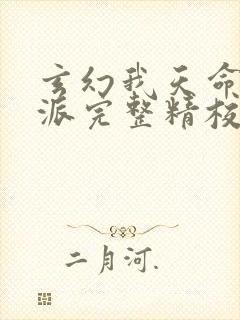 玄幻我天命
派完整精校
二月河.